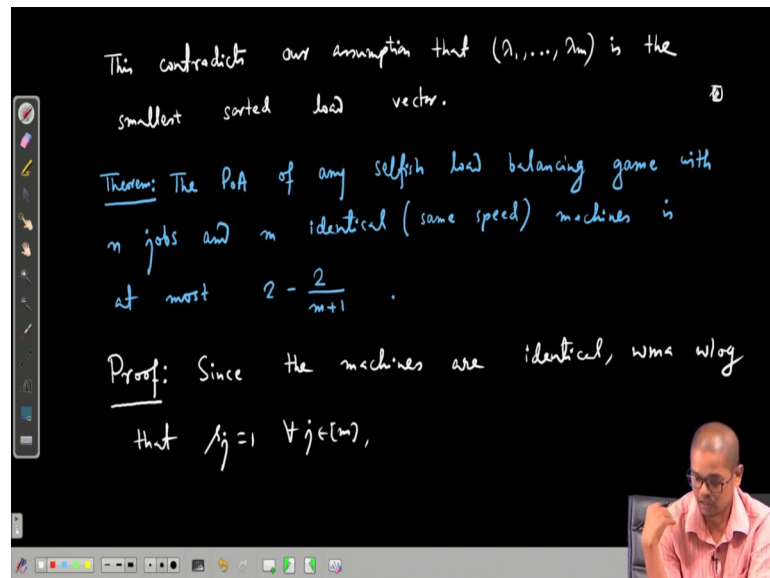 This contradicts our assumption that (λ₁,..., λm) is the
smallest sorted load vector.
Theorem: The PoA of any selfish load balancing game with
n jobs and m identical (same speed) machines is
at most 2 - 2/(m+1) .
Proof: Since the machines are identical, wma wlog
that sj = 1 ∀ j ∈ [m],